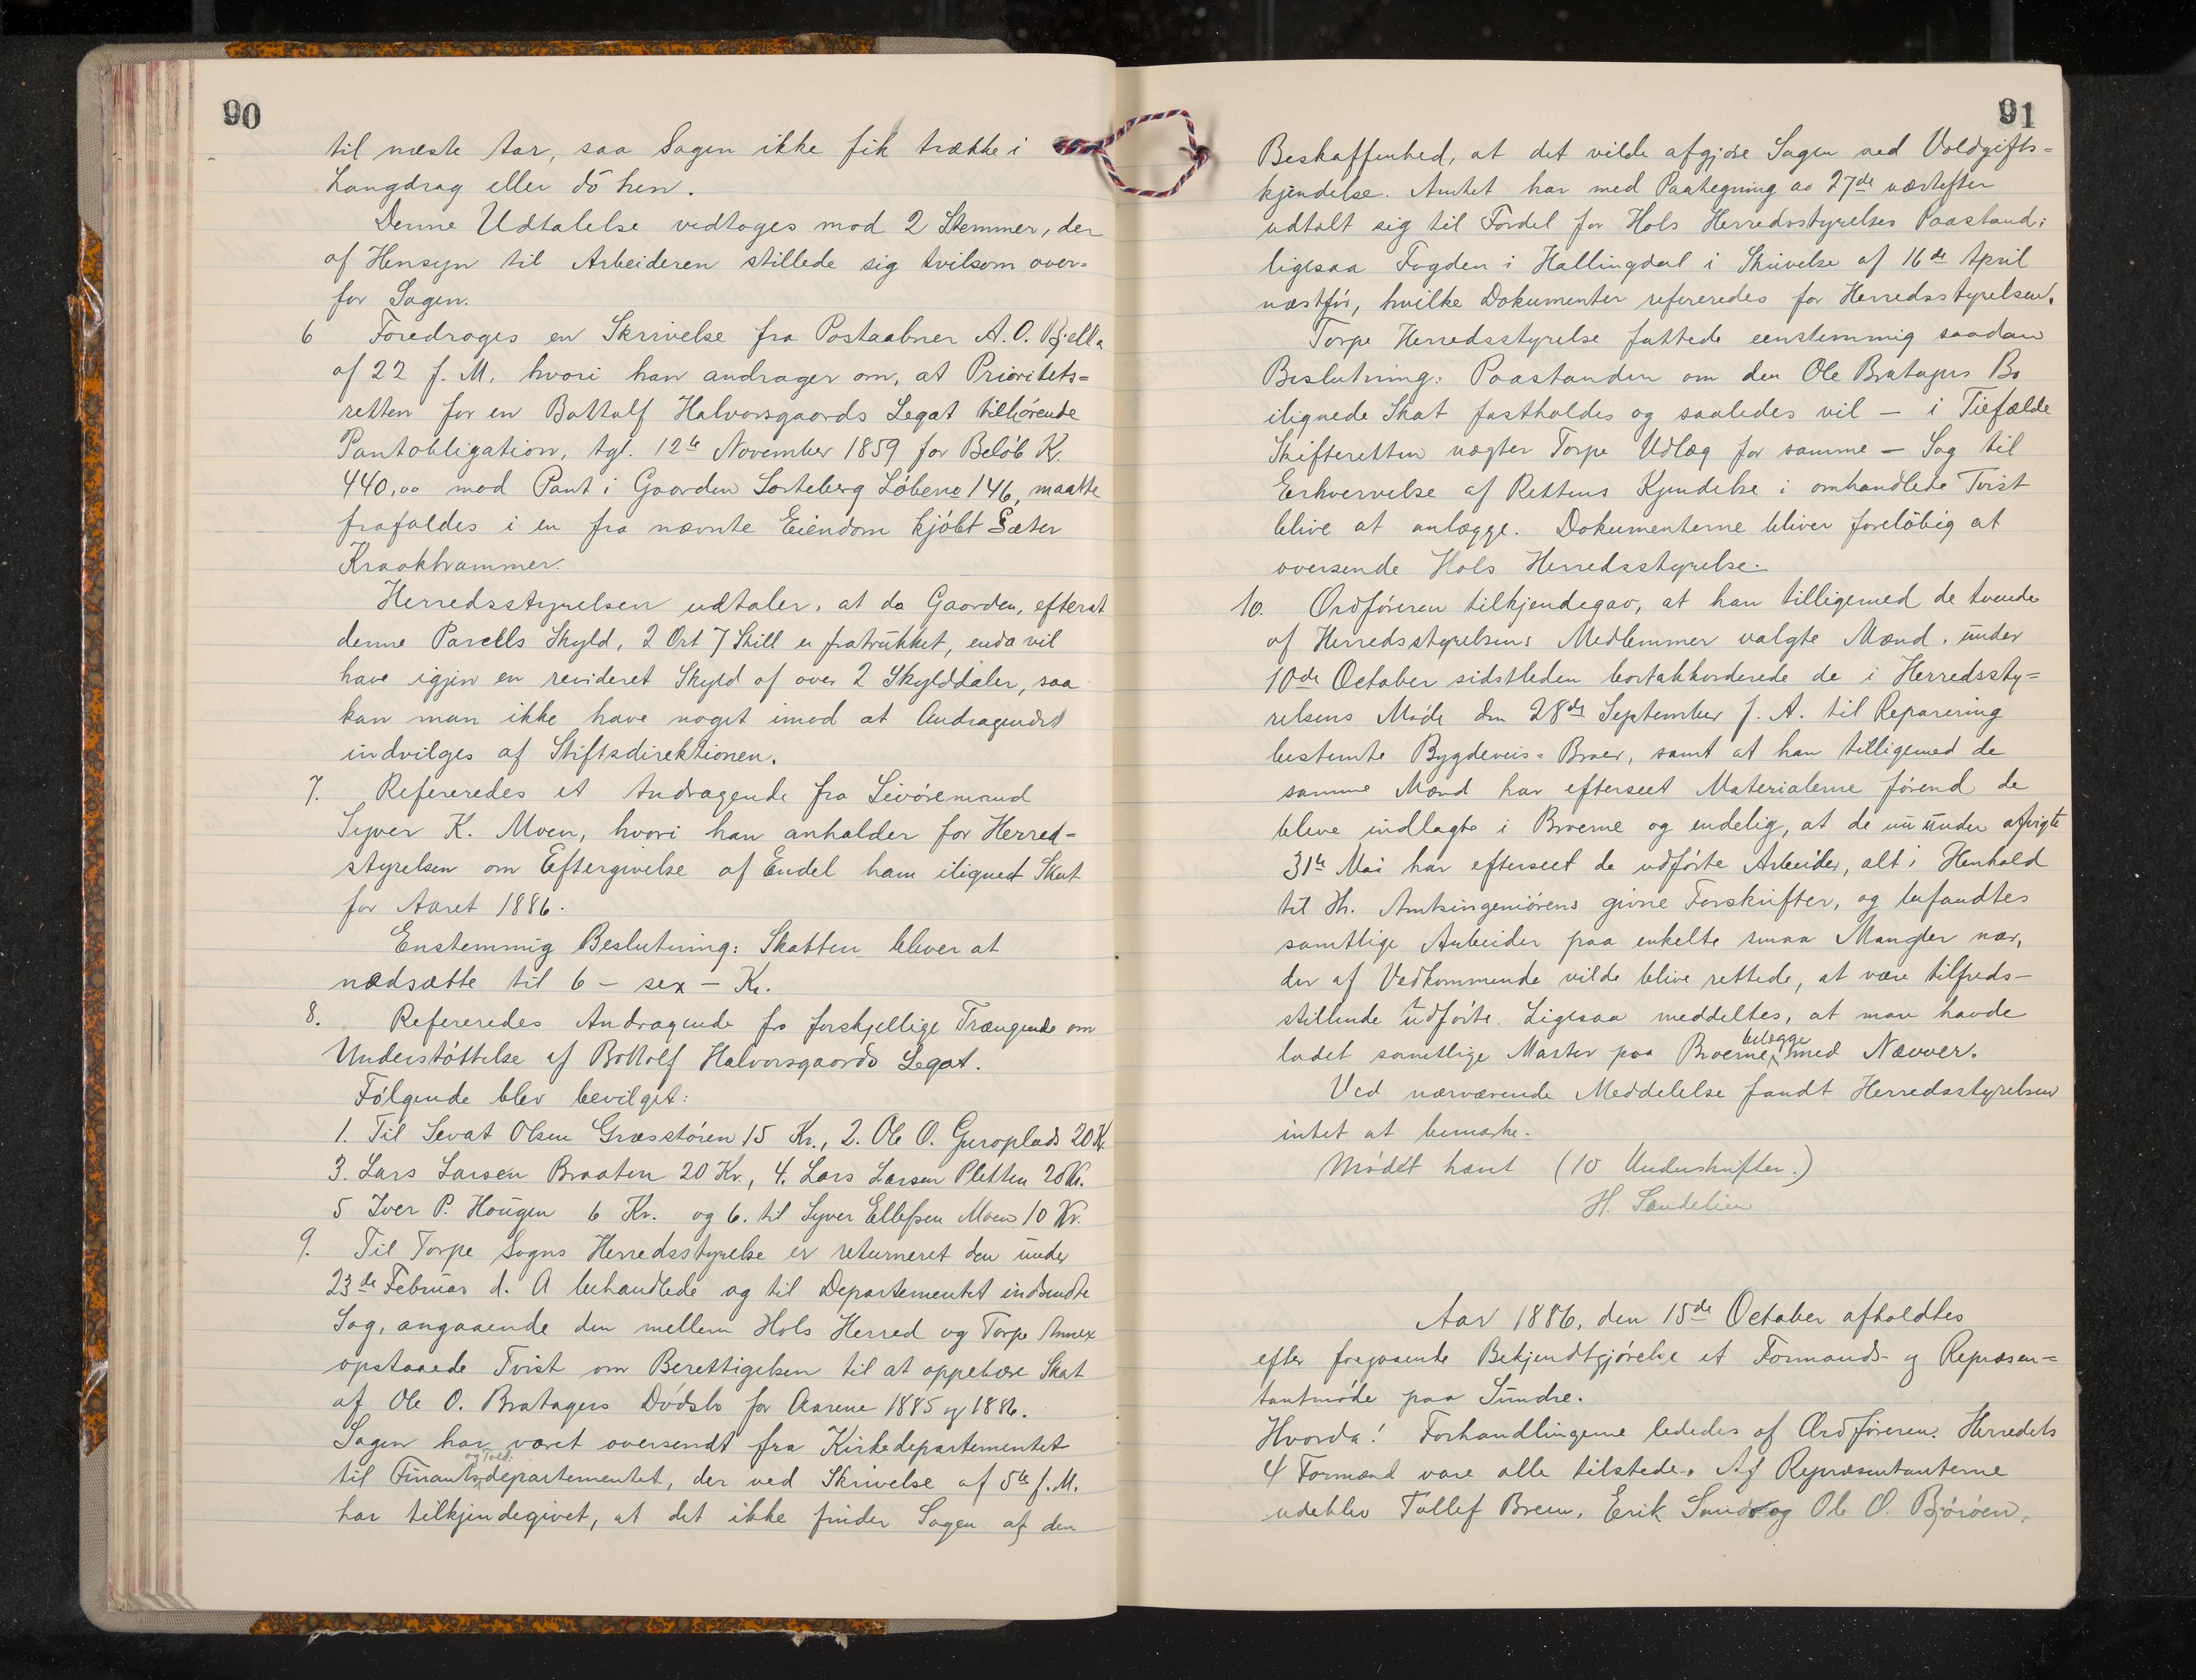 90
til næste Aar, saa Sagen ikke fik trække i
Langdrag eller dö hen.
Denne Udtalelse vedtoges mod 2 Stemmer, der
af Hensyn til Arbeideren stillede sig tvilsom over-
for Sagen.
6 Foredroges en Skrivelse fra Postaabner A. O. Bjella
af 22 f. M. hvori han andrager om, at Prioritets=
retten for en Bottolf Halvorsgaards Legat tilhörende
Pantobligation, tgl. 12te November 1859 for Belöb Kr.
440,00 mod Pant i Gaarden Sorteberg Löbeno 146, maatte
frafaldes i en fra nævnte Eiendom kjöbt Sæter
Kraakhammer.
Herredsstyrelsen udtaler, at da Gaarden, efterat
denne Parcells Skyld, 2 Ort 7 Skill er fratrukket, enda vil
have igjen en revideret Skyld af over 2 Skylddaler, saa
kan man ikke have noget imod at Andragendet
indvilges af Stiftsdirektionen.
7. Refereredes et Andragende fra Livöremand
Syver K. Moen, hvori han anholder for Herred-
styrelsen om Eftergivelse af Endel ham ilignet Skat
for Aaret 1886.
Enstemmig Beslutning: Skatten bliver at
nedsætte til 6 - sex - Kr.
8. Refereredes Andragende fra forskjellige Trængende om
Understöttelse af Bottolf Halvorsgaards Legat.
Fölgende blev bevilget:
1. Til Sevat Olsen Græsstören 15 Kr., 2. Ole O. Guroplads 20 Kr.
3. Lars Larsen Braaten 20 Kr., 4. Lars Larsen Pletten 20 Kr.
5 Iver P. Haugen 6 Kr. og 6. til Syver Ellefsen Moen 10 Kr.
9. Til Torpe Sogns Herredsstyrelse er returneret den under
23de Februar d. A behandlede og til Departementet indsendte
Sag, angaaende den mellem Hols Herred og Torpe Annex
opstaaede Tvist om Berettigelsen til at oppebære Skat
af Ole O. Bratagers Dödsbo for Aarene 1885 og 1886.
Sagen har været oversendt fra Kirkedepartementet
og Told-
til Finantsdepartementet, der ved Skrivelse af 5te f. M.
har tilkjendegivet, at det ikke finder Sagen af den
91
Beskaffenhed, at det vilde afgjöre Sagen ved Voldgifts=
kjendelse. Amtet har med Paategning av 27de næstefter
udtalt sig til Fordel for Hols Herredsstyrelses Paastand;
ligesaa Fogden i Hallingdal i Skrivelse af 16de April
næstför, hvilke Dokumenter refereredes for Herredsstyrelsen.
Torpe Herredsstyrelse fattede eenstemmig saadan
Beslutning: Paastanden om den Ole Bratagers Bo
ilignede Skat fastholdes og saaledes vil - i Tilfælde
Skifteretten nægter Torpe Udlæg for samme - Sag til
Erhvervelse af Rettens Kjendelse i omhandlede Tvist
blive at anlægge. Dokumenterne bliver foreløbig at
oversende Hols Herredsstyrelse.
10. Ordføreren tilkjendegav, at han tilligemed de tvende
af Herredsstyrelsens Medlemmer valgte Mænd, under
10de October sidstleden bortakkorderede de i Herredssty=
relsens Møde den 28de September f. A. til Reparering
bestemte Bygdeveis=Broer, samt at han tilligemed de
samme Mænd har efterseet Materialerne førend de
bleve indlagte i Broerne og endelig, at de nu under afvigte
31te Mai har efterseet de udførte Arbeider, alt i Henhold
til Hr. Amtsingeniørens givne Forskrifter, og befandtes
samtlige Arbeider paa enkelte smaa Mangler nær,
der af Vedkommende vilde blive rettede, at være tilfreds-
stillende udførte. Ligesaa meddeltes, at man havde
belægge
ladet samtlige Master paa Broerne med Næver.
Ved nærværende Meddelelse fandt Herredsstyrelsen
intet at bemærke.
Mødet hævet (10 Underskrifter.)
H. Sandelien
Aar 1886, den 15de October afholdtes
efter foregaaende Bekjendtgjørelse et Formands- og Repræsen=
tantmøde paa Sundre.
Hvorda! Forhandlingerne lededes af Ordføreren. Herredets
4 Formænd vare alle tilstede. Af Repræsentanterne
udeblev Tollef Breen, Erik Sando og Ole O. Björöen.